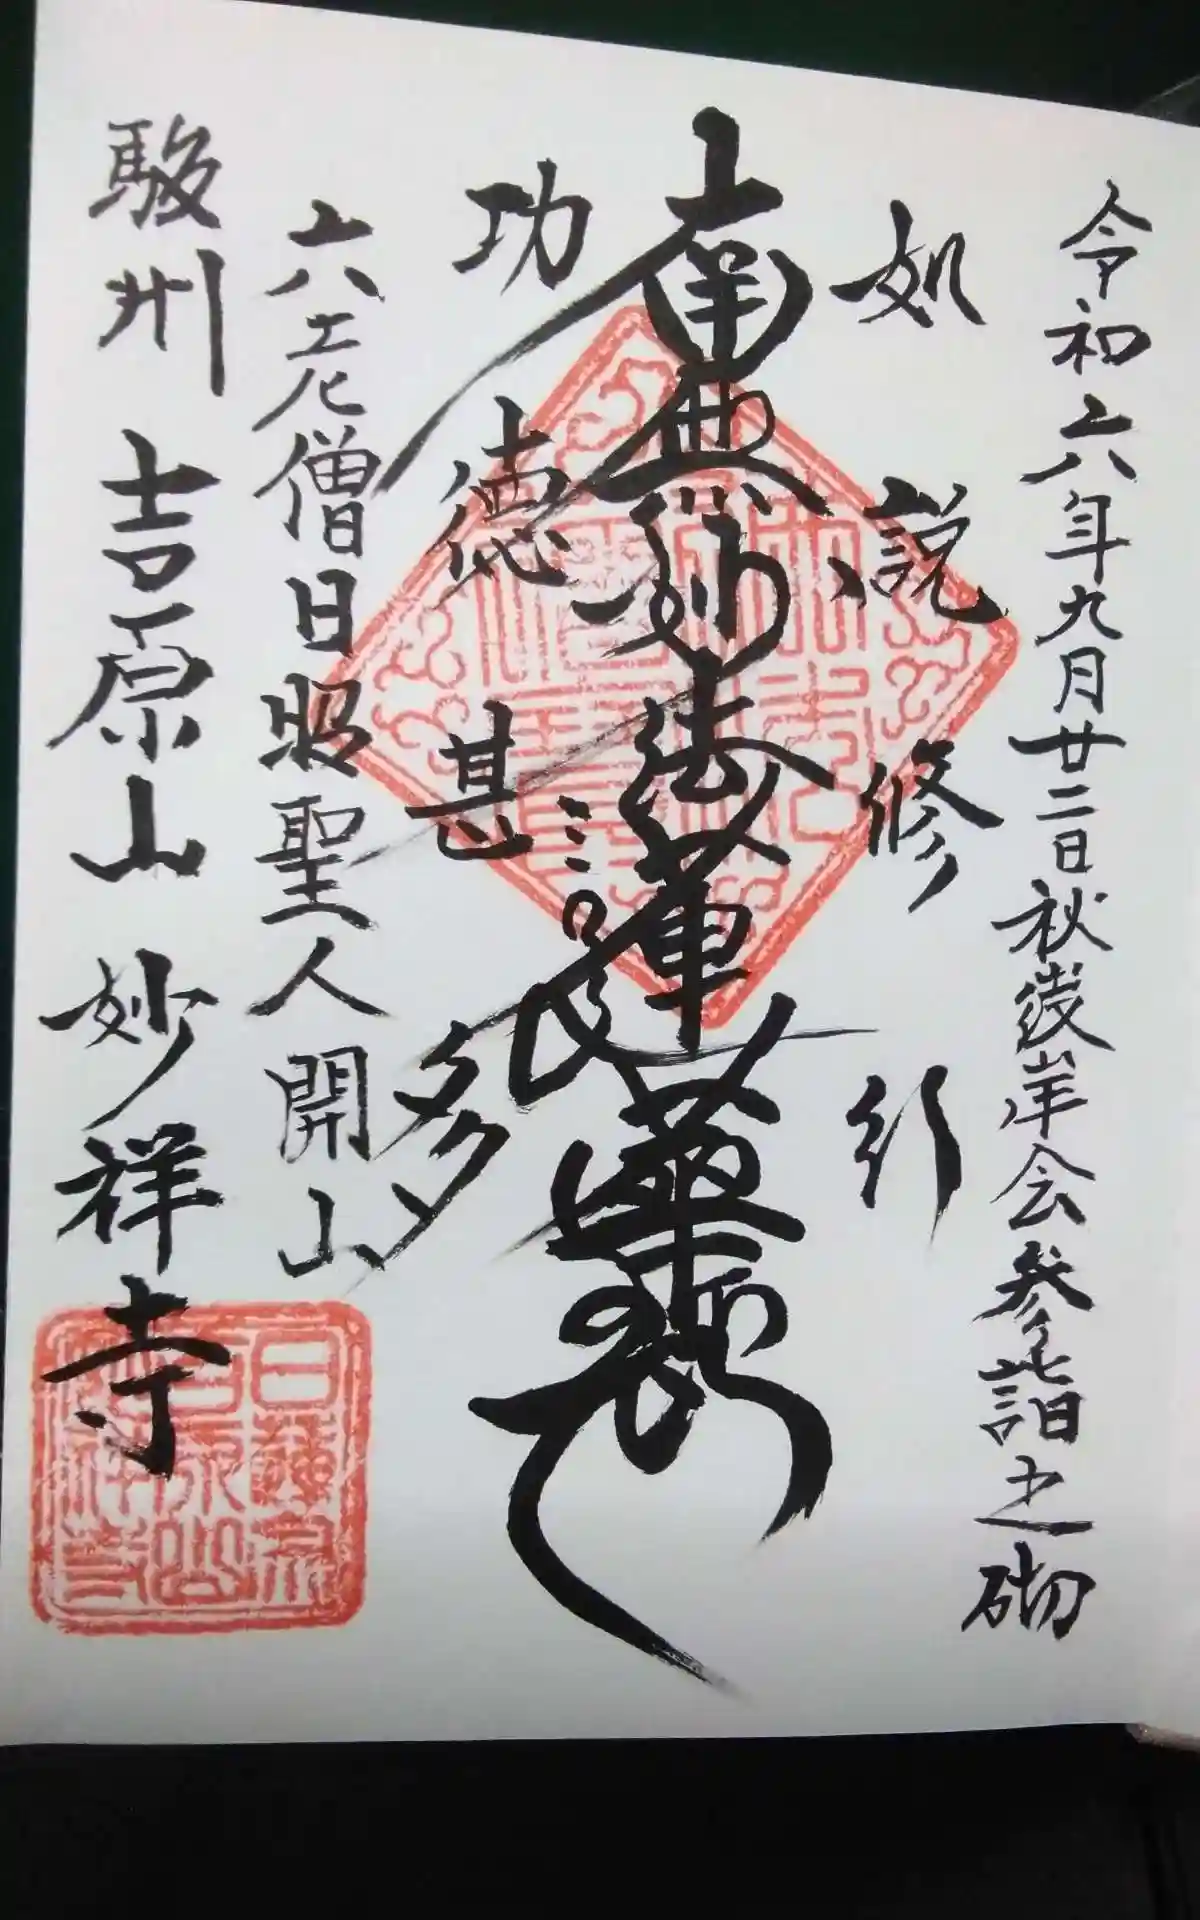 令和六年九月廿二日秋彼岸会参詣之砌
如説修行
南無妙法蓮華経
功徳甚多
六老僧日昭聖人開山
駿州 吉原山 妙祥寺